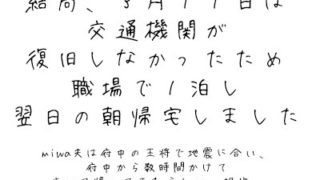 結局、3月11日は
交通機関が
復旧しなかったため
職場で1泊し
翌日の朝帰宅しました
miwa夫は府中の王将で地震に合い、
府中から数時間かけて